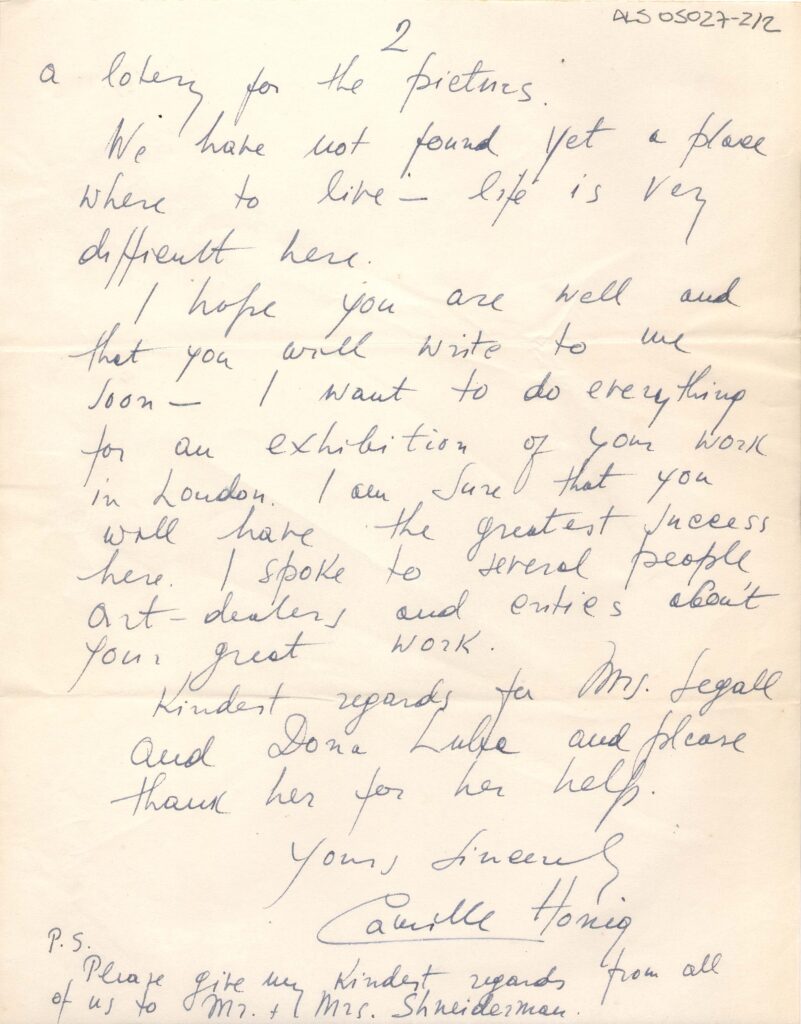 ALS 05027-2/2
2
a lotery for the picturs.
We have not found yet a place
where to live – life is very
difficult here.
I hope you are well and
that you will write to me
soon – I want to do everything
for an exhibition of your work
in London. I am sure that you
will have the greatest success
here. I spoke to several people
art-dealers and critics about
your great work.
Kindest regards for Mrs. Segall
and Dona Luba and please
thank her for her help.
Yours Sincerely
Camille Honig
P.S.
Please give my kindest regards from all
of us to Mr. + Mrs. Shneiderman.